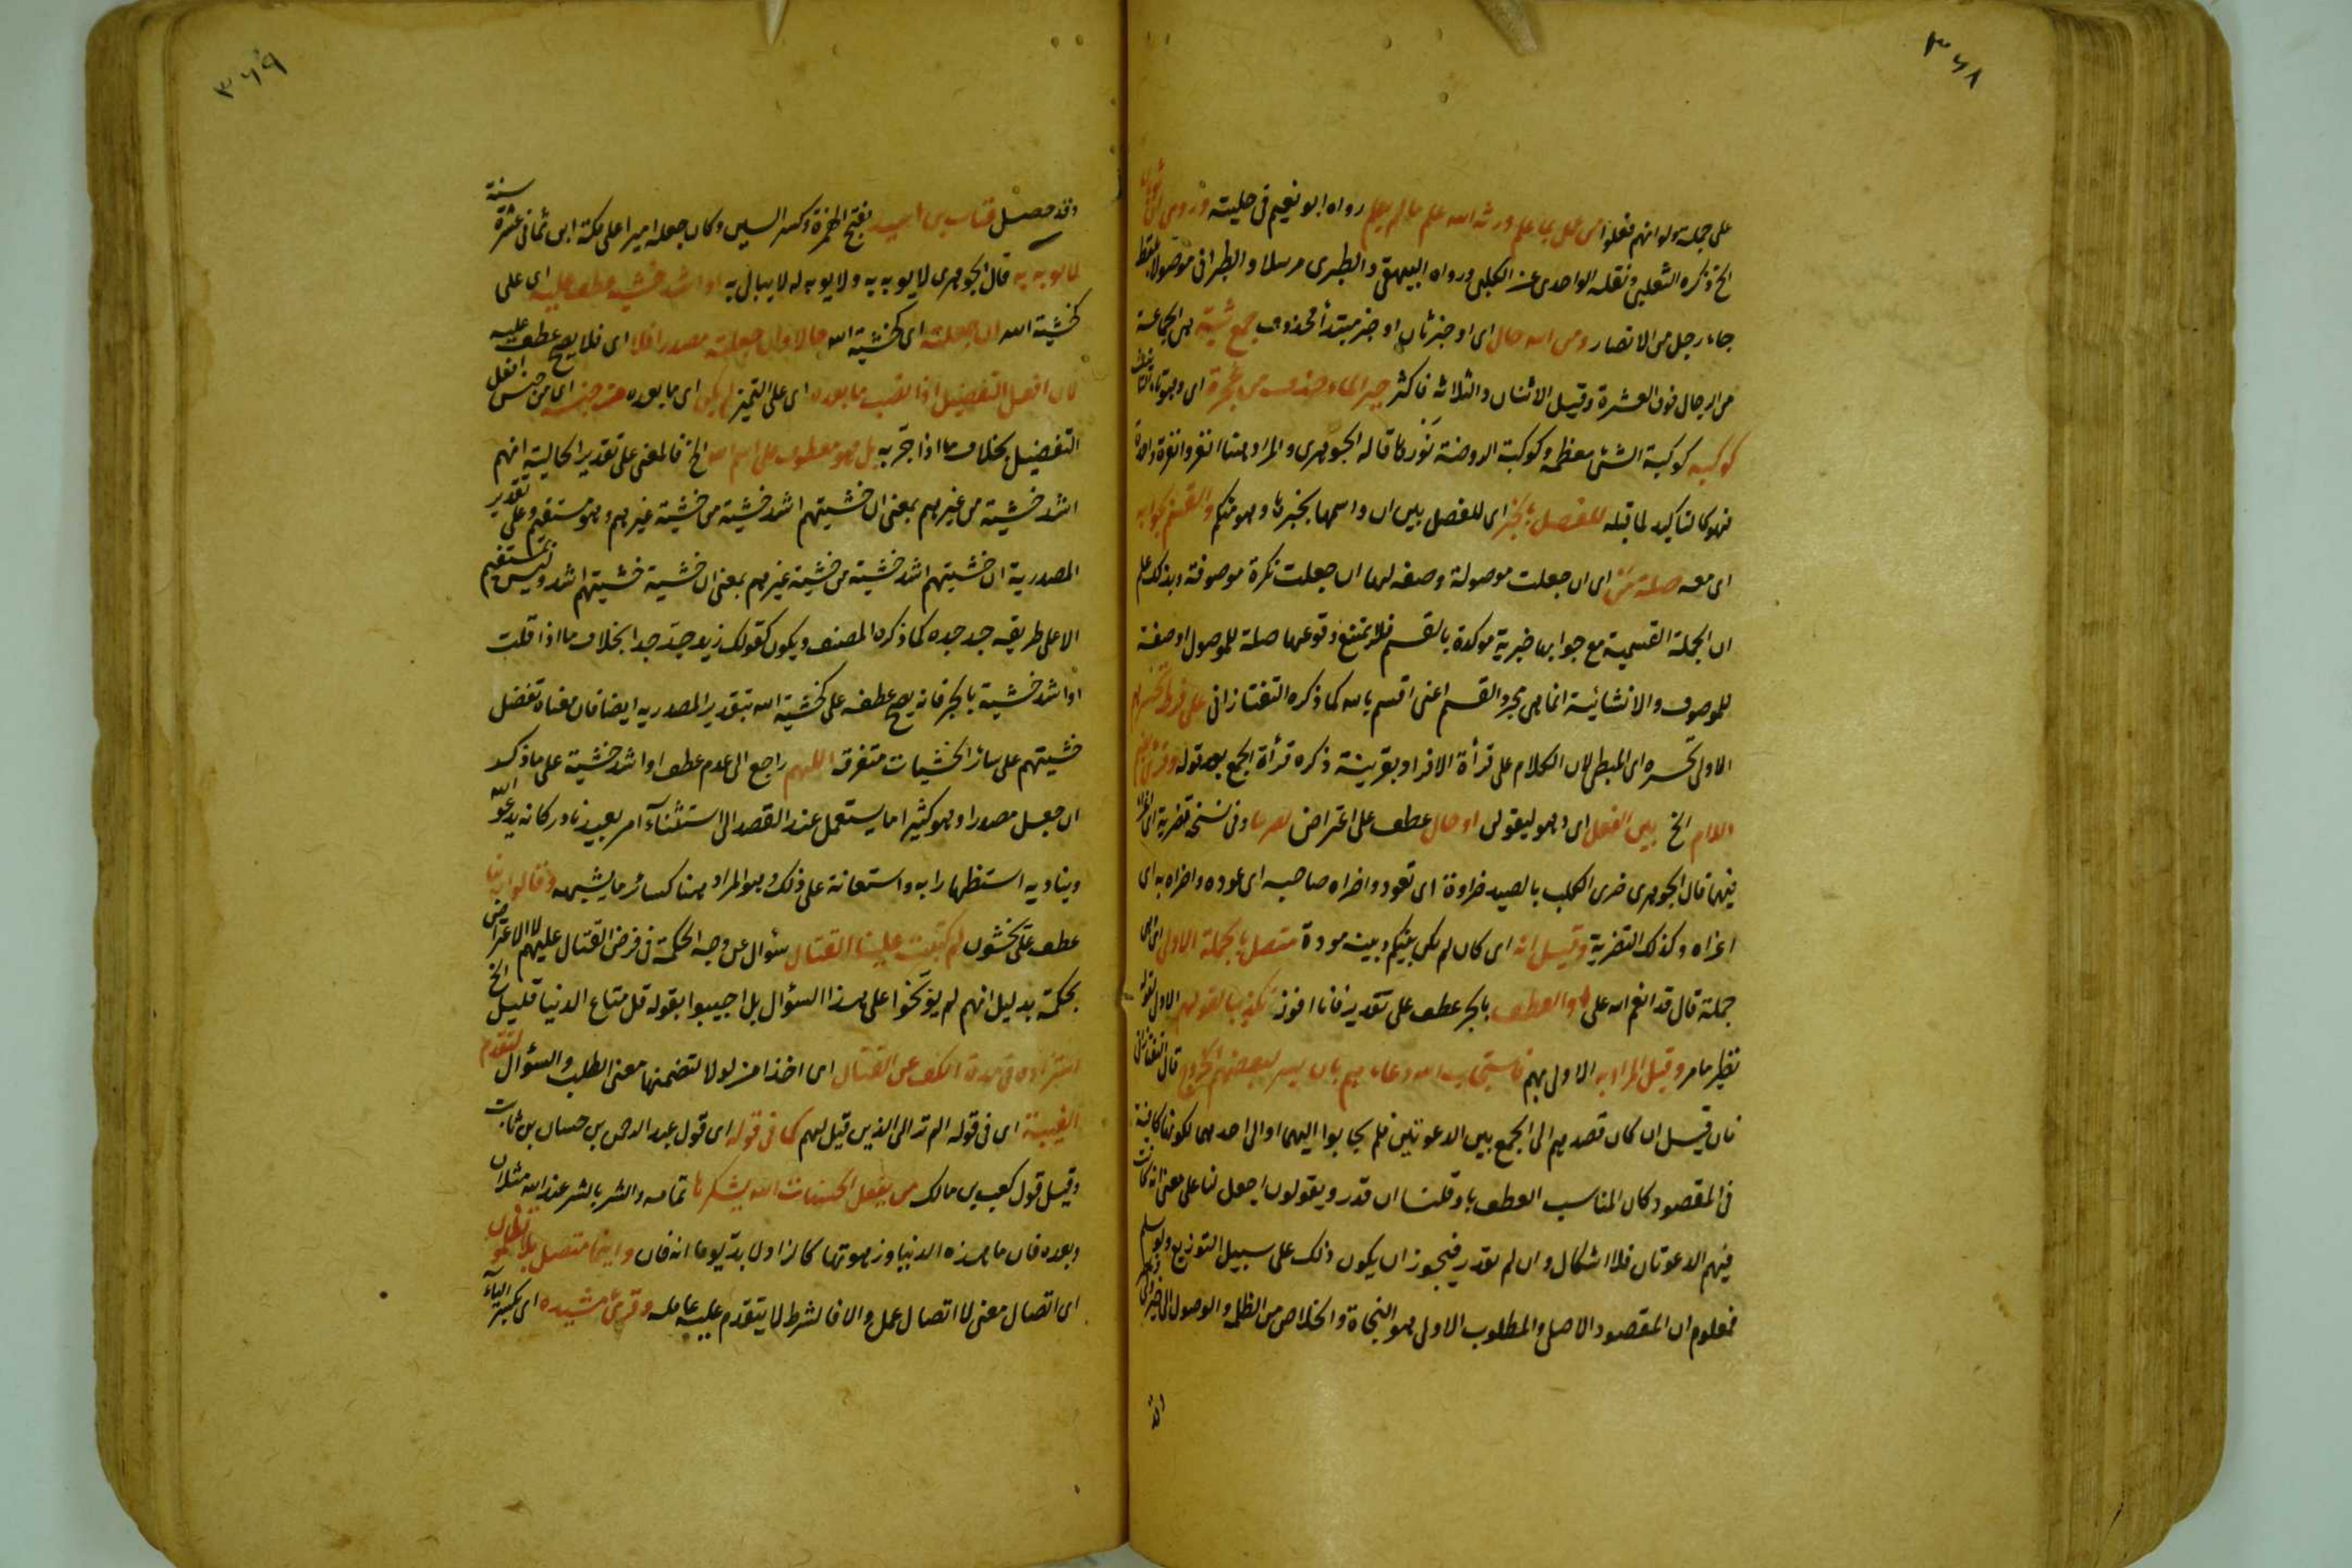 ٣٦٨
على جملة سولو انهم فعلوا من عمل بما علم ورثه الله علم ما لم يعلم رواه ابو نعيم فى حليته وروى ان ثوبان
الخ ذكره الثعلبى ونقله الواحدى عن الكلبى ورواه البيهقى والطبرى مرسلا والطبرانى موصولا بلفظ
جاء رجل من الانصار ومن الله حال اى او خبر ثان او خبر مبتدأ محذوف جمع ثبة هى الجماعة
من الرجال فوق العشرة وقيل الاثنان والثلاثة فاكثر
كوكبه كوكبة الشئ معظمه وكوكبة الروضة نورها قاله الجوهرى والمراد هنا انفروا نفرة واحدة
فهو كالتاكيد لما قبله للفصل بالخبر اى للفصل بين ان واسمها بخبرها وهو منكم والقسم بجوابه
اى معه صلة من اى ان جعلت موصولة وصفه لها ان جعلت نكرة موصوفة وبذلك علم
ان الجملة القسمية مع جوابها خبرية موكدة بالقسم فلا يمتنع وقوعها صلة للموصول او صفة
للموصوف والانشائية انما هى مجرد القسم اعنى اقسم بالله كما ذكره التفتازانى على فرط تحسرهم
الاولى تحسره اى المبطى لان الكلام على قرأة الافراد بقرينة ذكره قرأة الجمع بعد قوله
الخ بين الفعل اى وهو ليقولن او حال عطف على اعتراض وفى نسخة
فيها قال الجوهرى ضرى الكلب بالصيد ضراوة اى تعود واضراه صاحبه اى عوده واضراه به اى
اغراه وكذلك التضرية وقيل انه اى كان لم تكن بينكم وبينه مودة متصل بالجملة الاولى اى هى
جملة قال قد انعم الله على والعطف بالجر عطف على تقدير فانا افوز تكذيبا لقولهم الاولى لقوله
نظير ما مر وقيل المراد به الاولى بهم فاستجاب الله دعاءهم بان يسر لبعضهم الخروج قال التفتازانى
فان قيل ان كان قصدهم الى الجمع بين الدعوتين فلم يجابوا اليهما او الى احدهما لكونها كافية
فى المقصود كان المناسب العطف باو قلنا ان قدر ويقولون اجعل لنا على معنى انه كانت
فيهم الدعوتان فلا اشكال وان لم يقدر فيجوز ان يكون ذلك على سبيل التوزيع ولو سلم
فمعلوم ان المقصود الاصل والمطلوب الاول هو النجاة والخلاص من الظلمة والوصول الى
٣٦٩
وقد حصل عتاب بن اسيد بفتح الهمزة وكسر السين وكان جعله اميرا على مكة ابن ثمانى عشرة سنة
لا يوبه به قال الجوهرى لا يوبه به ولا يوبه له لا يبال به او اشد خشية عطف عليه اى على
كخشية الله ان جعلته اى كخشية الله حالا وان جعلته مصدرا فلا اى فلا يصح عطف عليه
لان افعل التفضيل اذا نصب ما بعده اى على التميز لم يكن اى ما بعده من جنسه اى من جنس افعل
التفضيل بخلاف ما اذا جر به بل هو معطوف على اسم الله الخ فالمعنى على تقدير الحالية انهم
اشد خشية من غيرهم بمعنى ان خشيتهم اشد خشية من خشية غيرهم وهو مستقيم وعلى تقدير
المصدرية ان خشيتهم اشد خشية من خشية غيرهم بمعنى ان خشية خشيتهم اشد وليس بمستقيم
الا على طريقة جد جده كما ذكره المصنف ويكون كقولك زيد جد جدا بخلاف ما اذا قلت
او اشد خشية بالجر فانه يصح عطفه على كخشية الله بتقدير المصدريه ايضا فان معناه تفضل
خشيتهم على سائر الخشيات متفرقة اللهم راجع الى عدم عطف او اشد خشية على ما ذكر
ان جعل مصدرا وهو كثيرا ما يستعمل عند القصد الى استثناء امر بعيد نادر كانه يدعو الله
ويناديه استظهارا به واستعانة على ذلك وهو المراد هنا كسائر ما يشبهه وقالوا ربنا
عطف على يخشون لم كتبت علينا القتال سئوال عن وجه الحكمة فى فرض القتال عليهم لا الاعتراض
بحكمة بدليل انهم لم يوبخوا على هذا السؤال بل اجيبوا بقوله قل متاع الدنيا قليل الخ
استزادة فى مدة الكف عن القتال اى اخذا من لولا لتضمنها معنى الطلب والسئوال لتقدم
الغيبة اى فى قوله الم تر الى الذين قيل لهم كما فى قوله اى قول عبد الرحمن بن حسان بن ثابت
وقيل قول كعب بن مالك من يفعل الحسنات الله يشكرها تمامه والشر بالشر عند الله مثلان
وبعده فان ما هذه الدنيا وزهوتها كالزاد لا بد يوما انه فان واينما متصل بلا تظلمون
اى اتصال معنى لا اتصال عمل والا فالشرط لا يتقدم عليه عامله وقرئ مشيده اى بكسر الياء